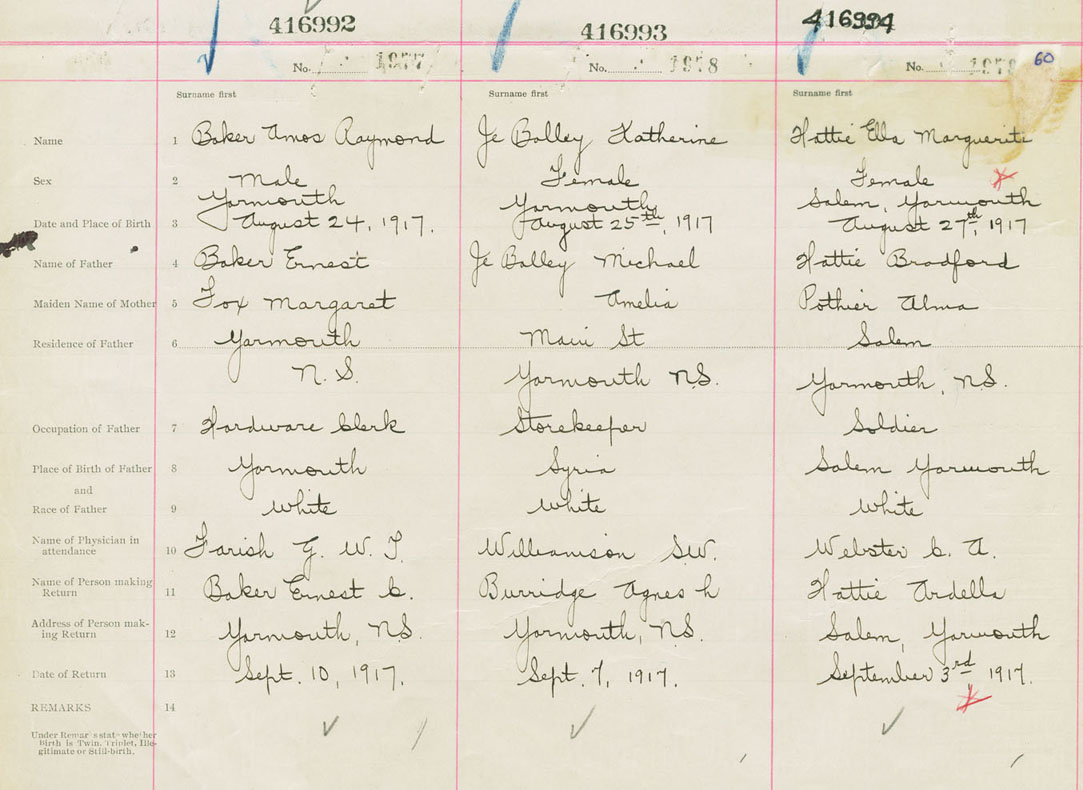 416992 416993 416994
No. 1977 No. 1978 No. 1979 60
Surname first Surname first Surname first
Name 1 Baker Amos Raymond Je Bolley Katherine Hattie Ella Marguerite
Sex 2 Male Female Female
Yarmouth Yarmouth Salem, Yarmouth
Date and Place of Birth 3 August 24, 1917. August 25th, 1917 August 27th, 1917
Name of Father 4 Baker Ernest Je Bolley Michael Hattie Bradford
Maiden Name of Mother 5 Fox Margaret Amelia Pothier Alma
Residence of Father 6 Yarmouth Main St Salem
N. S. Yarmouth N.S. Yarmouth, N.S.
Occupation of Father 7 Hardware Clerk Storekeeper Soldier
Place of Birth of Father 8 Yarmouth Syria Salem Yarmouth
and
Race of Father 9 White White White
Name of Physician in
attendance 10 Farish G. W. T. Williamson S.W. Webster C. A.
Name of Person making
Return 11 Baker Ernest C. Burridge Agnes h Hattie Ardella
Address of Person mak-
ing Return 12 Yarmouth, N.S. Yarmouth, N.S. Salem, Yarmouth
Date of Return 13 Sept. 10, 1917. Sept. 7, 1917. September 3rd 1917.
REMARKS 14
Under Remarks state whether
Birth is Twin, Triplet, Ille-
gitimate or Still-birth.